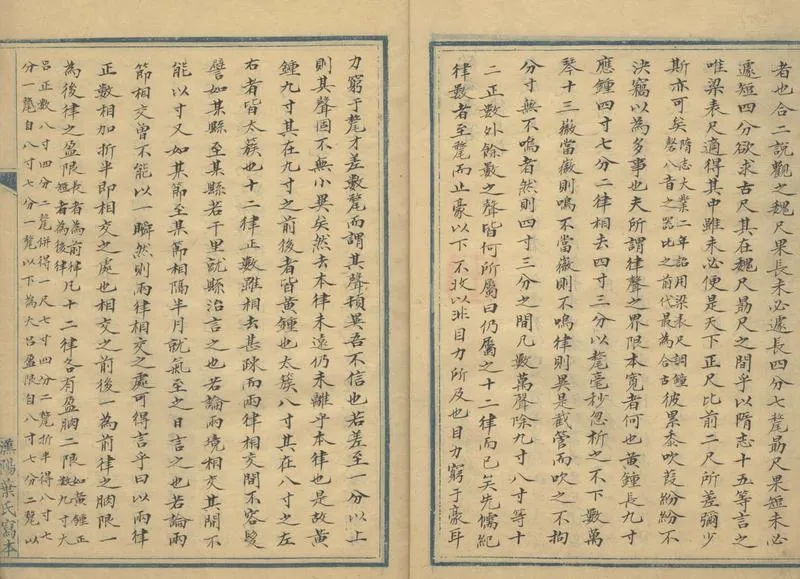 者也合二說觀之魏尺果長未必遽長四分七氂笳尺果短未必
遽短四分欲求古尺其在魏尺笳尺之間乎以隋志十五等言之
唯梁表尺適得其中雖未必便是天下正尺比前二尺所差彌少
斯亦可矣隋志大業二年詔用梁表尺調鐘
磬八音之器比之前代最為合古彼累黍吹葭紛紛不
決竊以為多事也夫所謂律聲之界限本寬者何也黃鍾長九寸
應鍾四寸七分二律相去四寸三分以氂毫秒忽析之不下數萬
琴十三徽當徽則鳴不當徽則不鳴律則異是截管而吹之不拘
分寸無不鳴者然則四寸三分之間凡數萬聲除九寸八寸等十
二正數外餘數之聲皆何所屬曰仍屬之十二律而已矣先儒紀
律數者至氂而止豪以下不收以非目力所及也目力窮于豪耳
力窮于氂才差數氂而謂其聲頓異吾不信也若差至一分以上
則其聲固不無小異矣然去本律未遠仍未離乎本律也是故黃
鍾九寸其在九寸之前後者皆黃鍾也太簇八寸其在八寸之左
右者皆太簇也十二律正數雖相去甚疎而兩律相交間不容髮
譬如某縣至某縣若干里就縣治言之也若論兩境相交其間不
能以寸又如某節至某節相隔半月就氣至之日言之也若論兩
節相交曾不能以一瞬然則兩律相交之處可得言乎曰以兩律
正數相加折半即相交之處也相交之前後一為前律之朒限一
為後律之盈限長者為前律
短者為後律凡十二律各有盈朒二限如黃鍾正
數九寸大
呂正數八寸四分二氂併得一尺七寸四分二氂折半得八寸七
分一氂自八寸七分一氂以下為大呂盈限自八寸七分二氂以
漁陽葉氏寫本